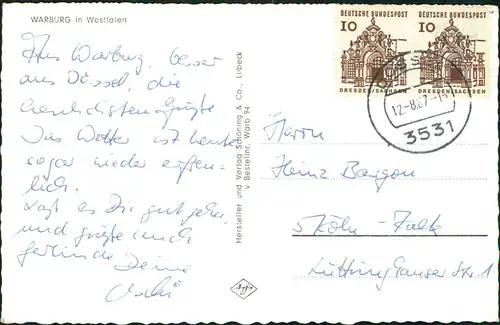 WARBURG in Westfalen
Aus Warburg, besser
aus Dössel, die
herzlichsten Grüße
Das Wetter ist heute
sogar wieder erfreu-
lich.
Laßt es Dir gut gehen
und grüße auch
Gerlinde Deine
Hersteller und Verlag Schöning & Co., Lübeck
v Bestellnr. Warb 94
Agfa
DEUTSCHE BUNDESPOST
10
DRESDEN/SACHSEN
DEUTSCHE BUNDESPOST
10
DRESDEN/SACHSEN
12.-8.67.-
3531
Herrn
Heinz Bargon
5 Köln-Kalk
Lüttringhauser Str. 1